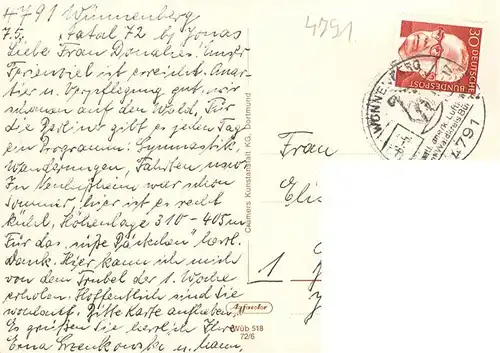 4791 Wünnenberg
7.5. Aatal 72 bei Jonas
Liebe Frau Donalies! Unser
Ferienziel ist erreicht. Quar-
tier u. Verpflegung gut, wir
schauen auf den Wald. Für
die gibt es jeden Tag
ein Programm: Gymnastik,
Wanderungen, Fahrten usw.
In war schon
Sommer, hier ist es recht
kühl, Höhenlage 310-405m
Für das "süße Päckchen" herzl.
Dank. Hier kann ich mich
von dem Trubel der 1. Woche
erholen. Hoffentlich sind Sie
wohlauf. Bitte Karte aufheben!
Es grüßen Sie herzlich Ihre
Erna u. Mann.
Cramers Kunstanstalt KG, Dortmund
Wüb 518
72/6
4791
30 DEUTSCHE
BUNDESPOST
WÜNNENBERG
4791
Frau
Eli
1